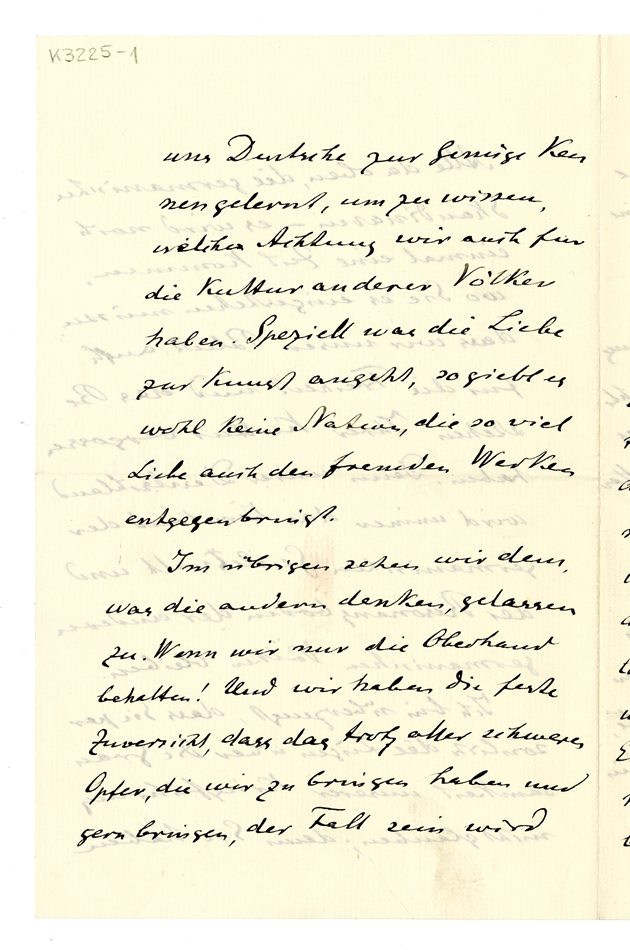 K3225-1
uns Deutsche zur Genüge Ken
nengelernt, um zu wissen,
welche Achtung wir auch für
die Kultur anderer Völker
haben. Speziell was die Liebe
zur Kunst angeht, so giebt es
wohl keine Nation, die so viel
Liebe auch den fremden Werken
entgegenbringt.
Im übrigen sehen wir dem,
was die andern denken, gelassen
zu. Wenn wir nur die Oberhand
behalten! Und wir haben die feste
Zuversicht, dass das trotz aller schweren
Opfer, die wir zu bringen haben und
gern bringen, der Fall sein wird